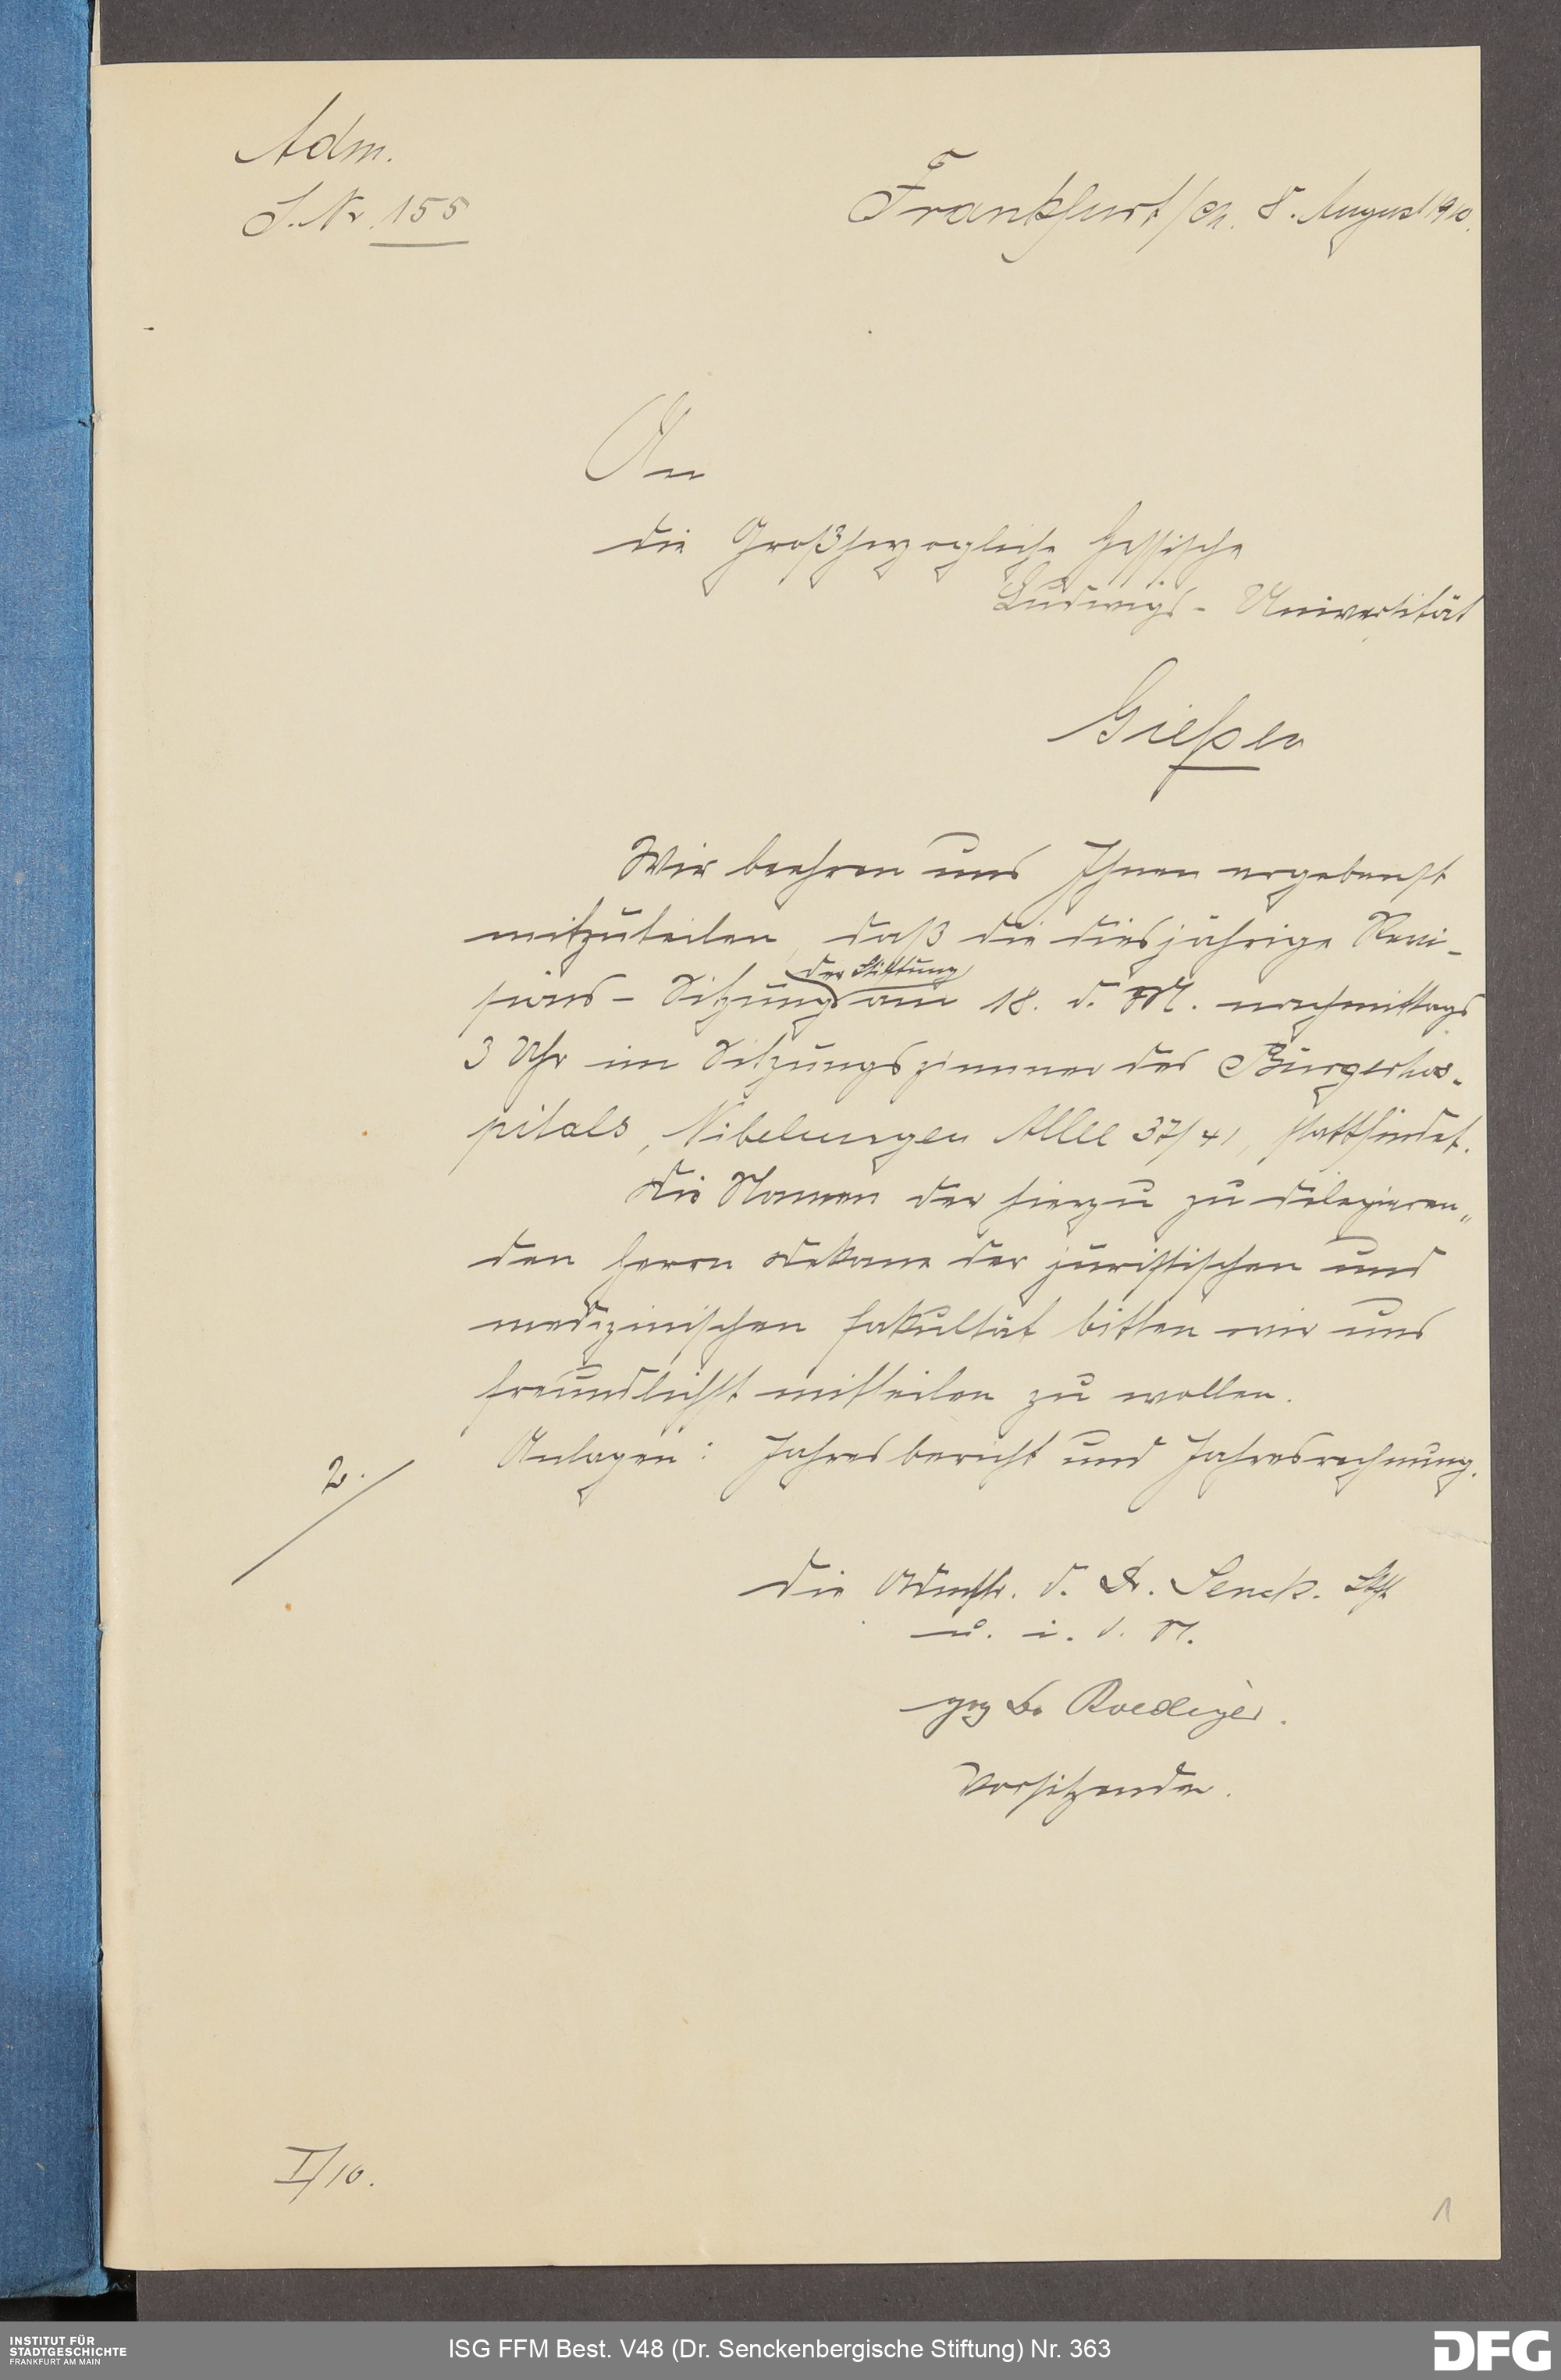 Adm.
J. Nr 155
Frankfurt/M. 8. August 1910.
An
die Großherzogliche Hessische
Ludwigs-Universität
Gießen
Wir beehren uns Ihnen ergebenst
mitzuteilen, daß die diesjährige Revi-
der Stiftung
sions-Sitzung am 18. d. M. nachmittags
3 Uhr im Sitzungszimmer des Bürgerhos-
pitals, Nibelungen Allee 37/41, stattfindet.
Die Namen der hierzu zu delegieren-
den Herrn Dekane der juristischen und
medizinischen Fakultät bitten wir uns
freundlichst mitteilen zu wollen.
2.
Anlagen: Jahresbericht und Jahresrechnung.
Die Admstr. d. Dr. Senck. Stft
u. i. d. N.
gez Dr Roediger.
Vorsitzender.
I/10.
1
INSTITUT FÜR
STADTGESCHICHTE
FRANKFURT AM MAIN
ISG FFM Best. V48 (Dr. Senckenbergische Stiftung) Nr. 363
DFG